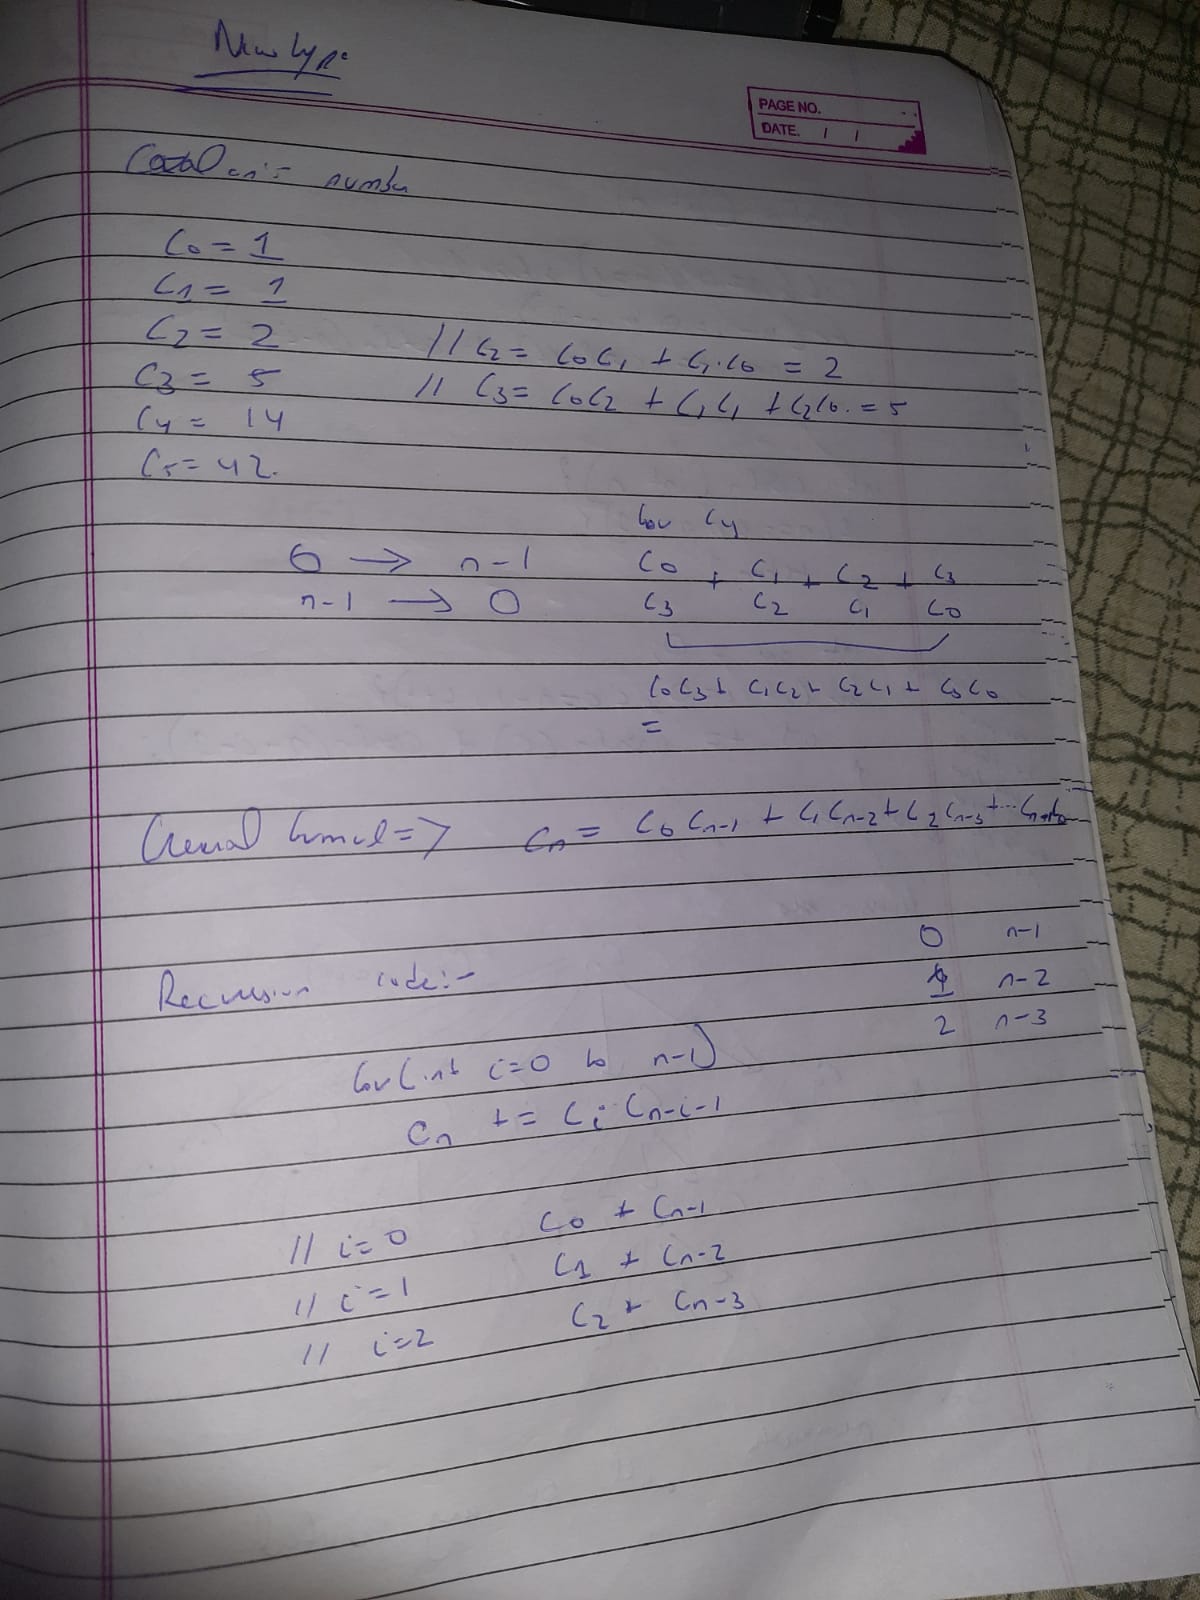 New type
PAGE NO.
DATE. / /
Catalan:- number
C0 = 1
C1 = 1
C2 = 2 // C2 = C0C1 + C1.C0 = 2
C3 = 5 // C3 = C0C2 + C1C1 + C2C0. = 5
C4 = 14
C5 = 42.
for C4
0 → n-1 C0 + C1 + C2 + C3
n-1 → 0 C3 C2 C1 C0
C0C3 + C1C2 + C2C1 + C3C0
=
General => Cn = C0 Cn-1 + C1 Cn-2 + C2 Cn-3 + ...
0 n-1
Recursion code:- 1 n-2
2 n-3
for (int i=0 to n-1)
Cn += Ci Cn-i-1
// i=0 C0 + Cn-1
// i=1 C1 + Cn-2
// i=2 C2 + Cn-3